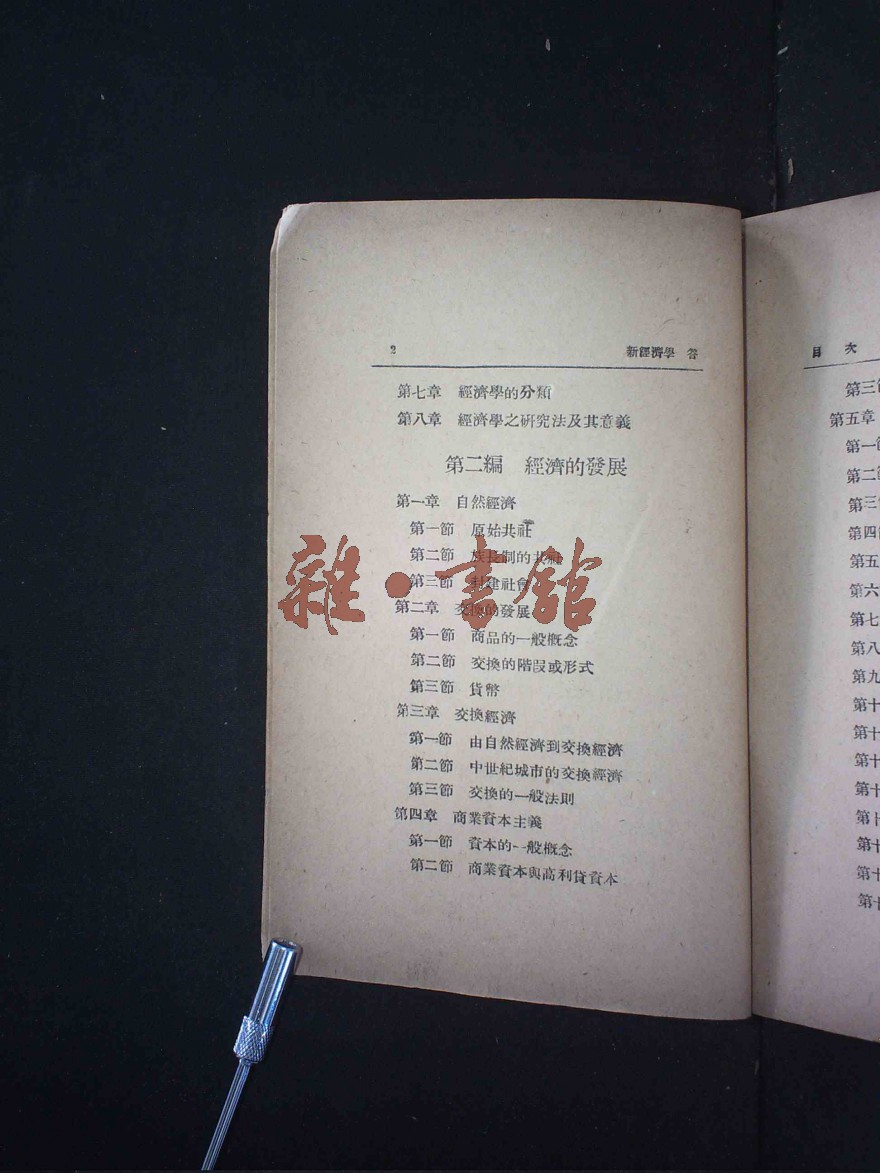 2 新經濟學 答
第七章 經濟學的分類
第八章 經濟學之研究法及其意義
第二編 經濟的發展
第一章 自然經濟
第一節 原始共社
第二節 族長制的共社
第三節 封建社會
第二章 交換的發展
第一節 商品的一般概念
第二節 交換的階段或形式
第三節 貨幣
第三章 交換經濟
第一節 由自然經濟到交換經濟
第二節 中世紀城市的交換經濟
第三節 交換的一般法則
第四章 商業資本主義
第一節 資本的一般概念
第二節 商業資本與高利貸資本
雜·書館
目 次
第三節
第五章
第一節
第二節
第三
第四節
第五
第六
第七
第八
第九
第十
第十
第十
第十
第十
第十
第十
第十